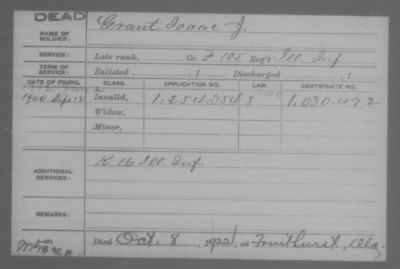 DEAD
NAME OF SOLDIER: Grant Isaac J.
SERVICE: Late rank, Co. F 105 Reg't Ill. Inf
TERM OF SERVICE: Enlisted , 1 Discharged , 1
DATE OF FILING. CLASS. APPLICATION NO. LAW. CERTIFICATE NO.
1900 Invalid, 1.254.354 1.030.472
Widow,
Minor,
ADDITIONAL SERVICES: K 16 Ill Inf
REMARKS:
Died Oct. 8 , at Fruithurst, Ala.